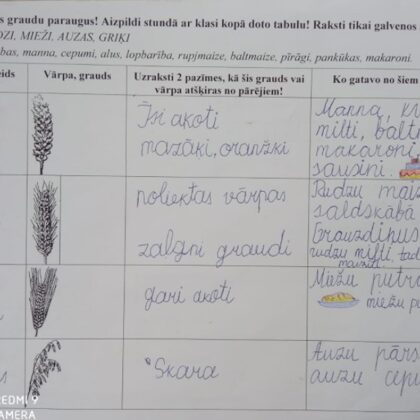 s graudu paraugus! Aizpildi stundā ar klasi kopā doto tabulu! Raksti tikai galvenos
DZI, MIEŽI, AUZAS, GRIĶI
bas, manna, cepumi, alus, lopbarība, rupjmaize, baltmaize, pīrāgi, pankūkas, makaroni.
eids
Vārpa, grauds
Uzraksti 2 pazīmes, kā šis grauds vai
vārpa atšķiras no pārējiem!
Ko gatavo no šiem
Īsi akoti
mazāki, oranžki
Manna, kr
milti, balt
makaroni
sausiņi.
noliektas vārpas
zaļgni graudi
Rudzu maiz
saldskābā
Grauzdiņus
rudzu milti, tad
gari akoti
Miežu putra
miežu pu
Skara
Auzu pārs
auzu cepu
REDMI 9
CAMERA